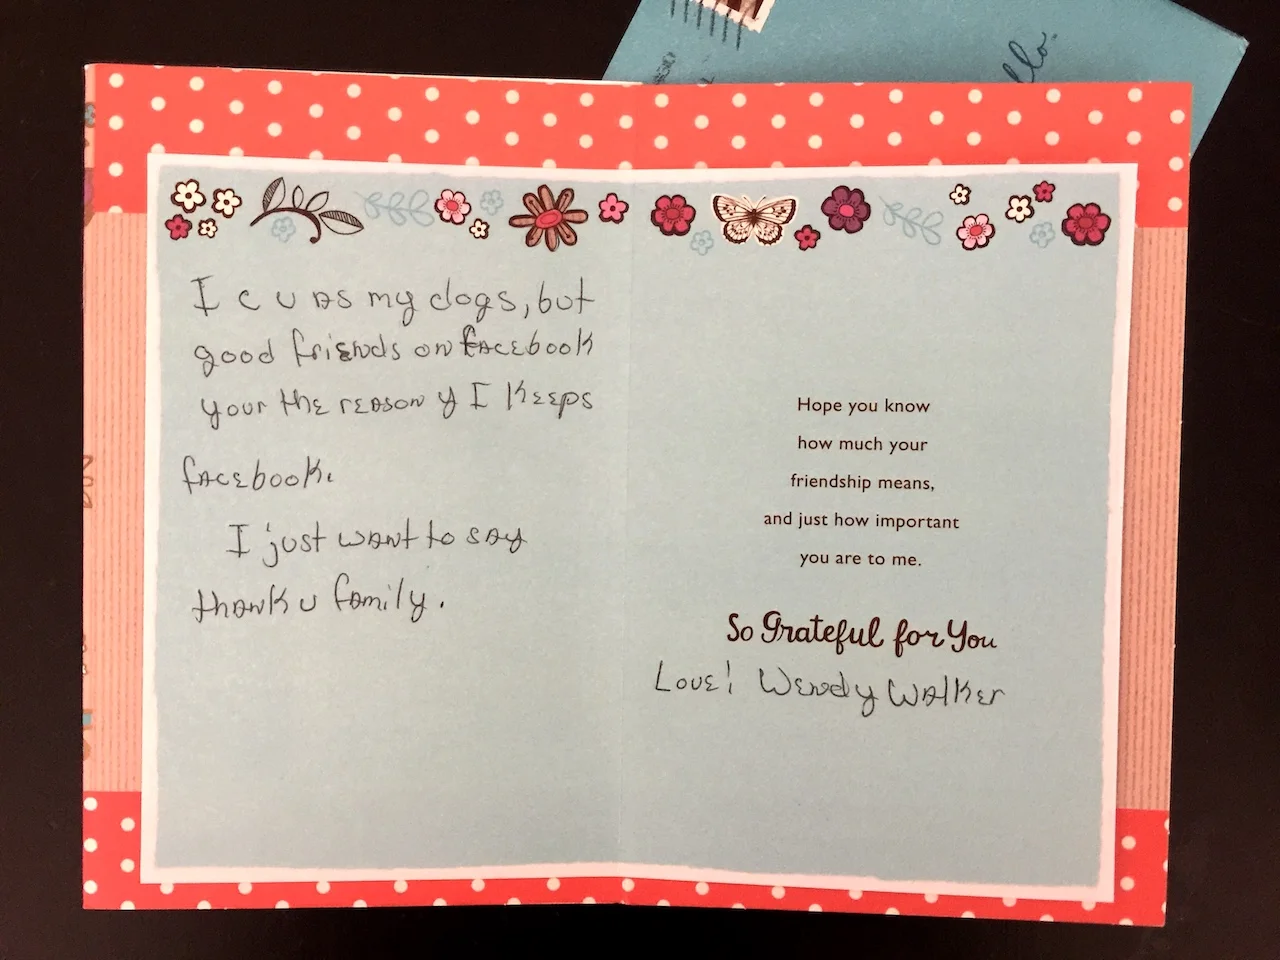 llo.
I c u as my dogs, but
good friends on facebook
your the reason y I keeps
facebook.
I just want to say
thank u family.
Hope you know
how much your
friendship means,
and just how important
you are to me.
So Grateful for You
Love! Wendy Walker